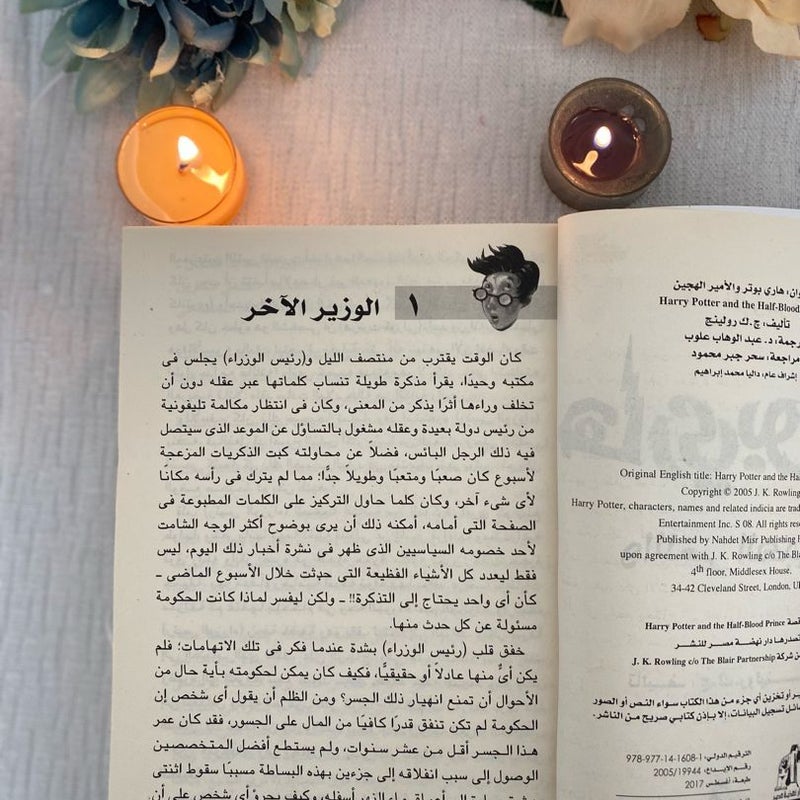 هارى بوتر والأمير الهجين
Harry Potter and the Half-Blood
تأليف: ج. ك رولينج
د. عبد الوهاب علوب
مراجعة: سحر جبر محمود
إشراف عام: داليا محمد إبراهيم
Original English title: Harry Potter and the
Copyright © 2005 J. K. Rowling
Harry Potter, characters, names and related indicia are
Entertainment Inc. S 08. All rights
Published by Nahdet Misr Publishing
upon agreement with J. K. Rowling c/o The
4th floor, Middlesex House,
34-42 Cleveland Street, London,
Harry Potter and the Half-Blood Prince
تصدرها دار نهضة مصر للنشر
شركة J. K. Rowling c/o The Blair Partnership
أو تخزين أى جزء من هذا الكتاب سواء النص أو الصور
تسجيل البيانات، إلا بإذن كتابي صريح من الناشر.
الترقيم الدولي: 978-977-14-1608-1
رقم الإيداع: 2005/19944
طبعة: أغسطس 2017
١ الوزير الآخر
كان الوقت يقترب من منتصف الليل و(رئيس الوزراء) يجلس فى
مكتبه وحيدًا، يقرأ مذكرة طويلة تنساب كلماتها عبر عقله دون أن
تخلف وراءها أثرًا يذكر من المعنى، وكان فى انتظار مكالمة تليفونية
من رئيس دولة بعيدة وعقله مشغول بالتساؤل عن الموعد الذى سيتصل
فيه ذلك الرجل البائس، فضلاً عن محاولته كبت الذكريات المزعجة
لأسبوع كان صعبًا ومتعبًا وطويلاً جدًّا؛ مما لم يترك فى رأسه مكانًا
لأى شىء آخر، وكان كلما حاول التركيز على الكلمات المطبوعة فى
الصفحة التى أمامه، أمكنه ذلك أن يرى بوضوح أكثر الوجه الشامت
لأحد خصومه السياسيين الذى ظهر فى نشرة أخبار ذلك اليوم، ليس
فقط ليعدد كل الأشياء الفظيعة التى حدثت خلال الأسبوع الماضى ـ
كأن أى واحد يحتاج إلى التذكرة!! ـ ولكن ليفسر لماذا كانت الحكومة
مسئولة عن كل حدث منها.
خفق قلب (رئيس الوزراء) بشدة عندما فكر فى تلك الاتهامات؛ فلم
يكن أىٌّ منها عادلاً أو حقيقيًّا، فكيف كان يمكن لحكومته بأية حال من
الأحوال أن تمنع انهيار ذلك الجسر؟ ومن الظلم أن يقول أى شخص إن
الحكومة لم تكن تنفق قدرًا كافيًا من المال على الجسور، فقد كان عمر
هذا الجسر أقل من عشر سنوات، ولم يستطع أفضل المتخصصين
الوصول إلى سبب انفلاقه إلى جزءين بهذه البساطة مسببًا سقوط اثنتى